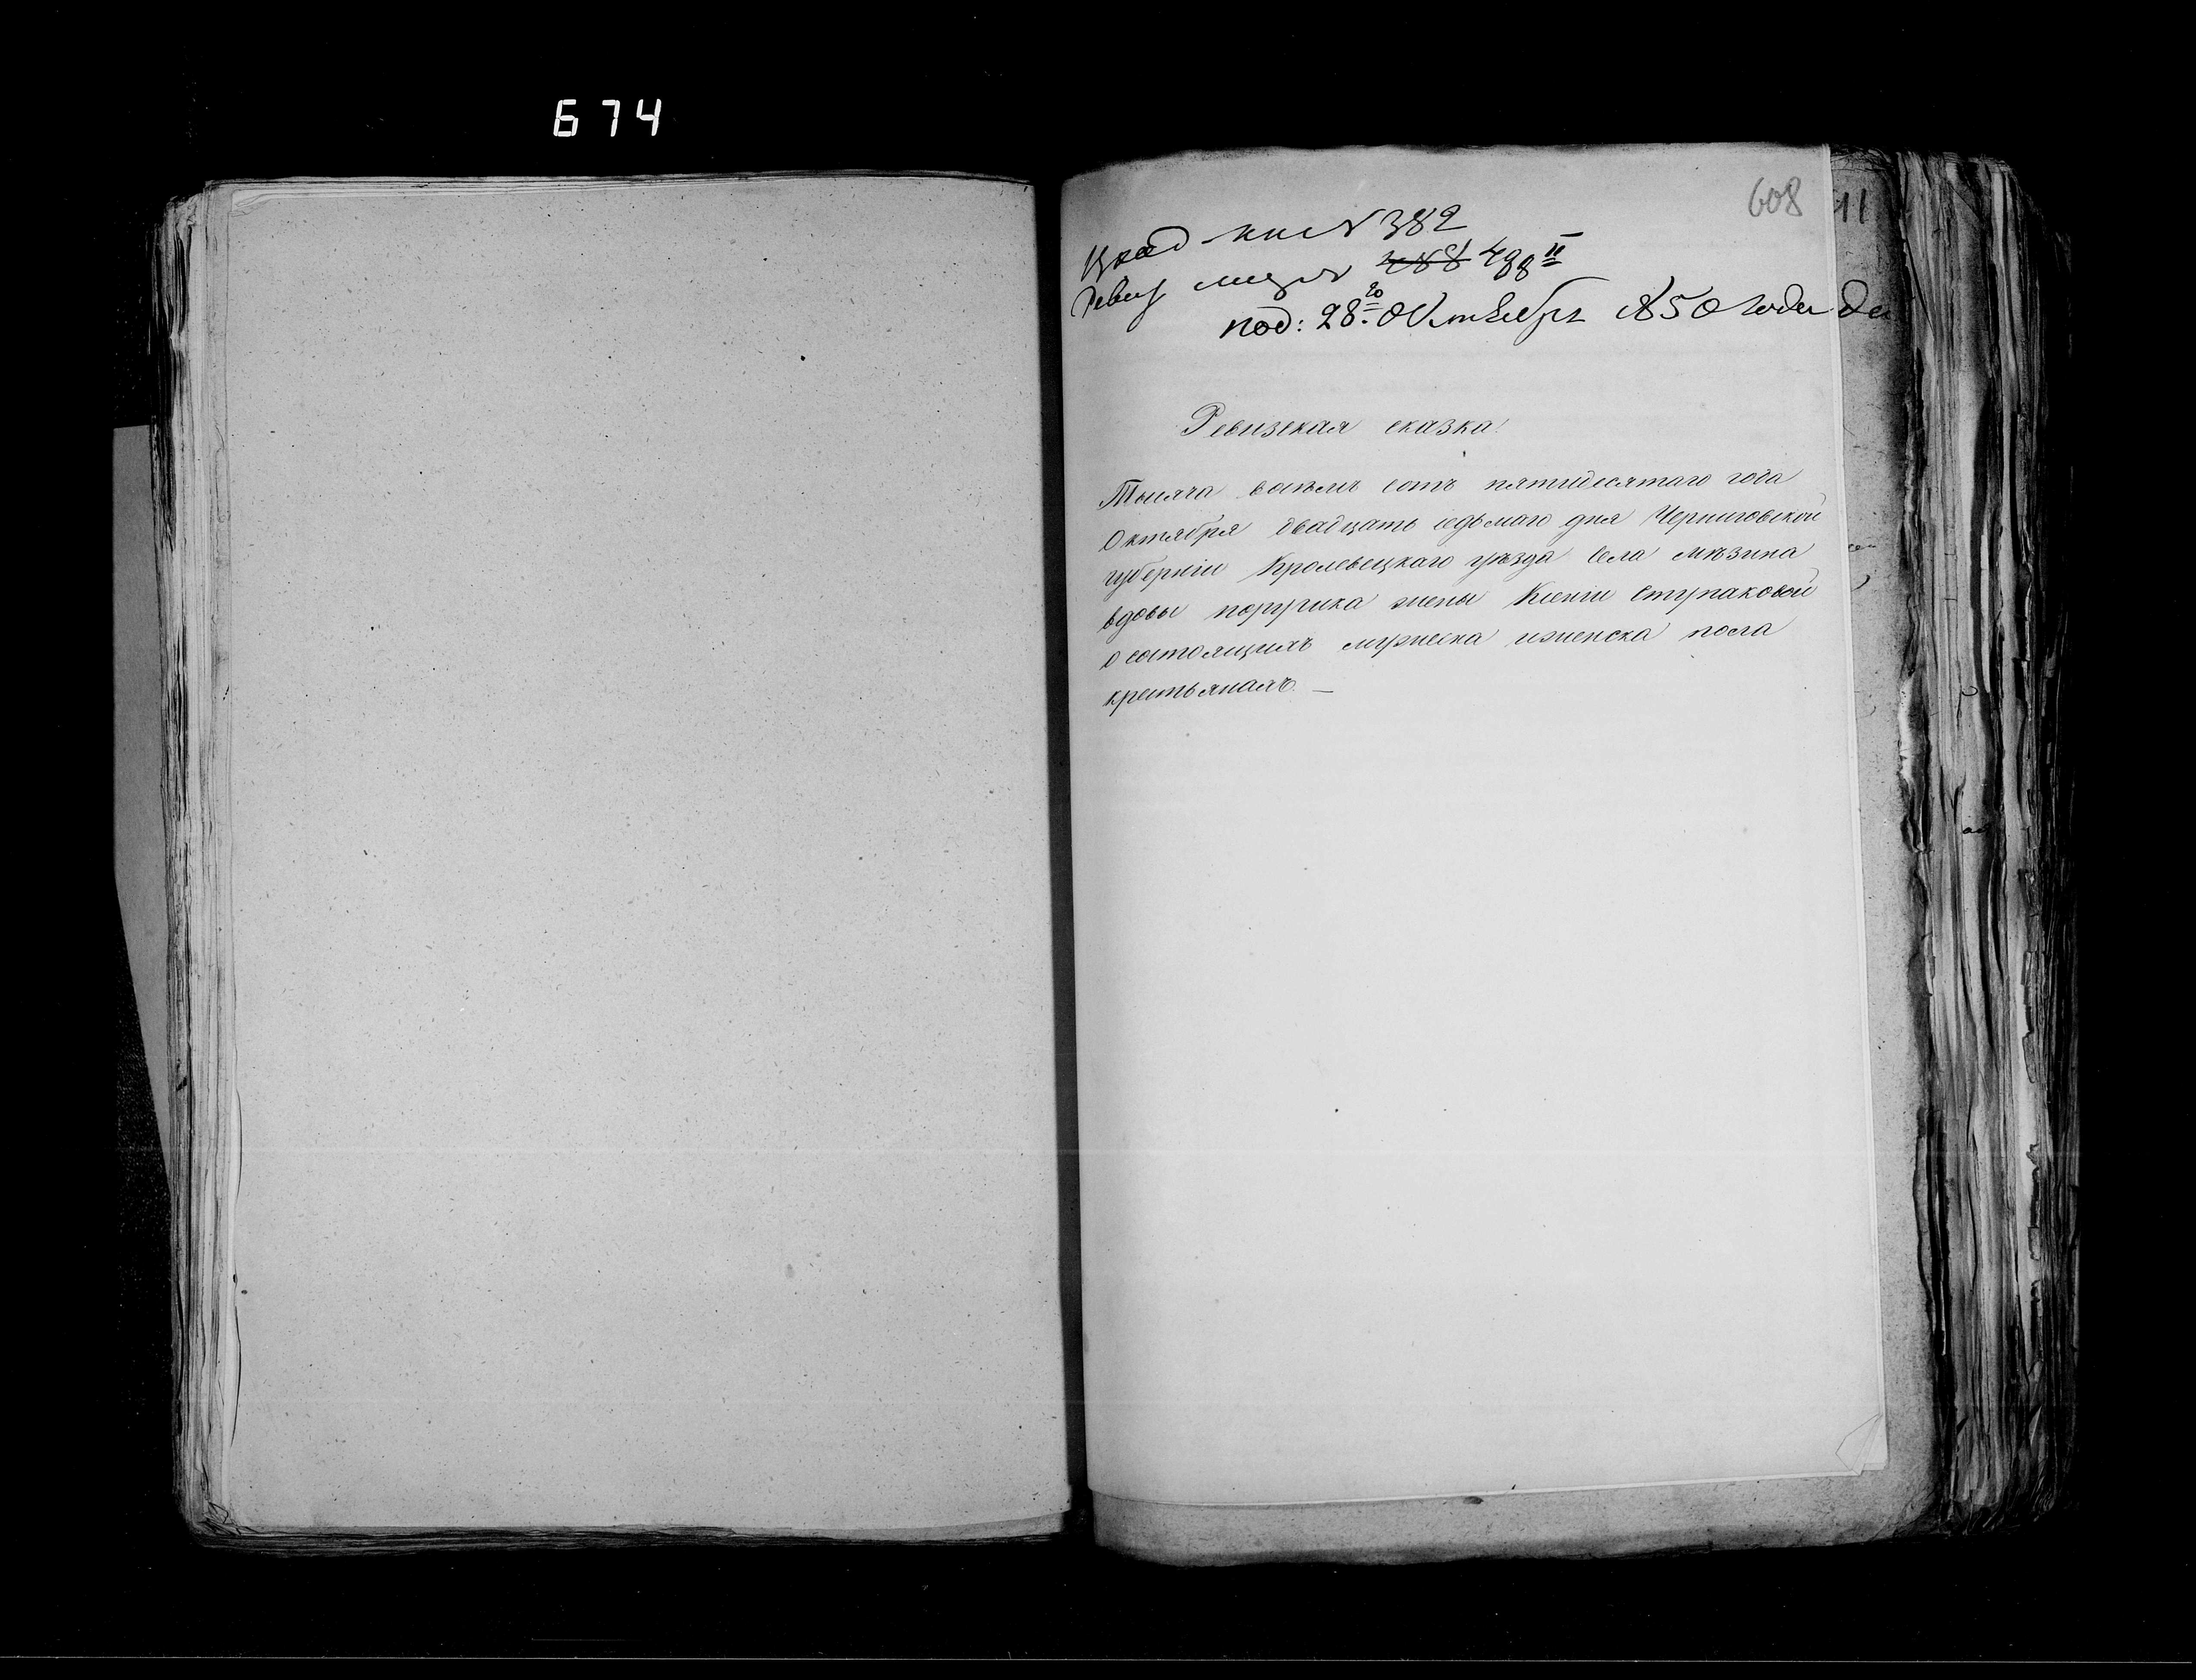 674
608
11
Окла кни N 382
Ревиз сказ N 488 498
под: 28го Октября 1850 года
Ревизская сказка
Тысяча восемь сотъ пятидесятаго года
Октября двадцать седьмаго дня Черниговской
губерніи Кролевецкаго уѣзда села Мѣзина
вдовы поручика жены Ксеніи Ступаковой
о состоящихъ мужеска иженска пола
крестьянахъ. —